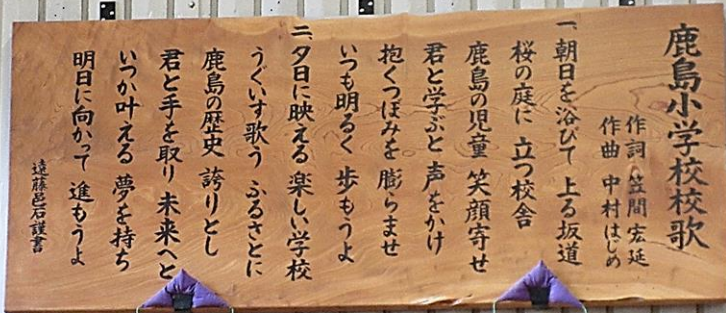 鹿島小学校校歌
作詞 笠間宏延
作曲 中村はじめ
一、朝日を浴びて 上る坂道
桜の庭に 立つ校舎
鹿島の児童 笑顔寄せ
君と学ぶと 声をかけ
抱くつぼみを 膨らませ
いつも明るく 歩もうよ
二、夕日に映える 楽しい学校
うぐいす歌う ふるさとに
鹿島の歴史 誇りとし
君と手を取り 未来へと
いつか叶える 夢を持ち
明日に向かって 進もうよ
遠藤邑石謹書